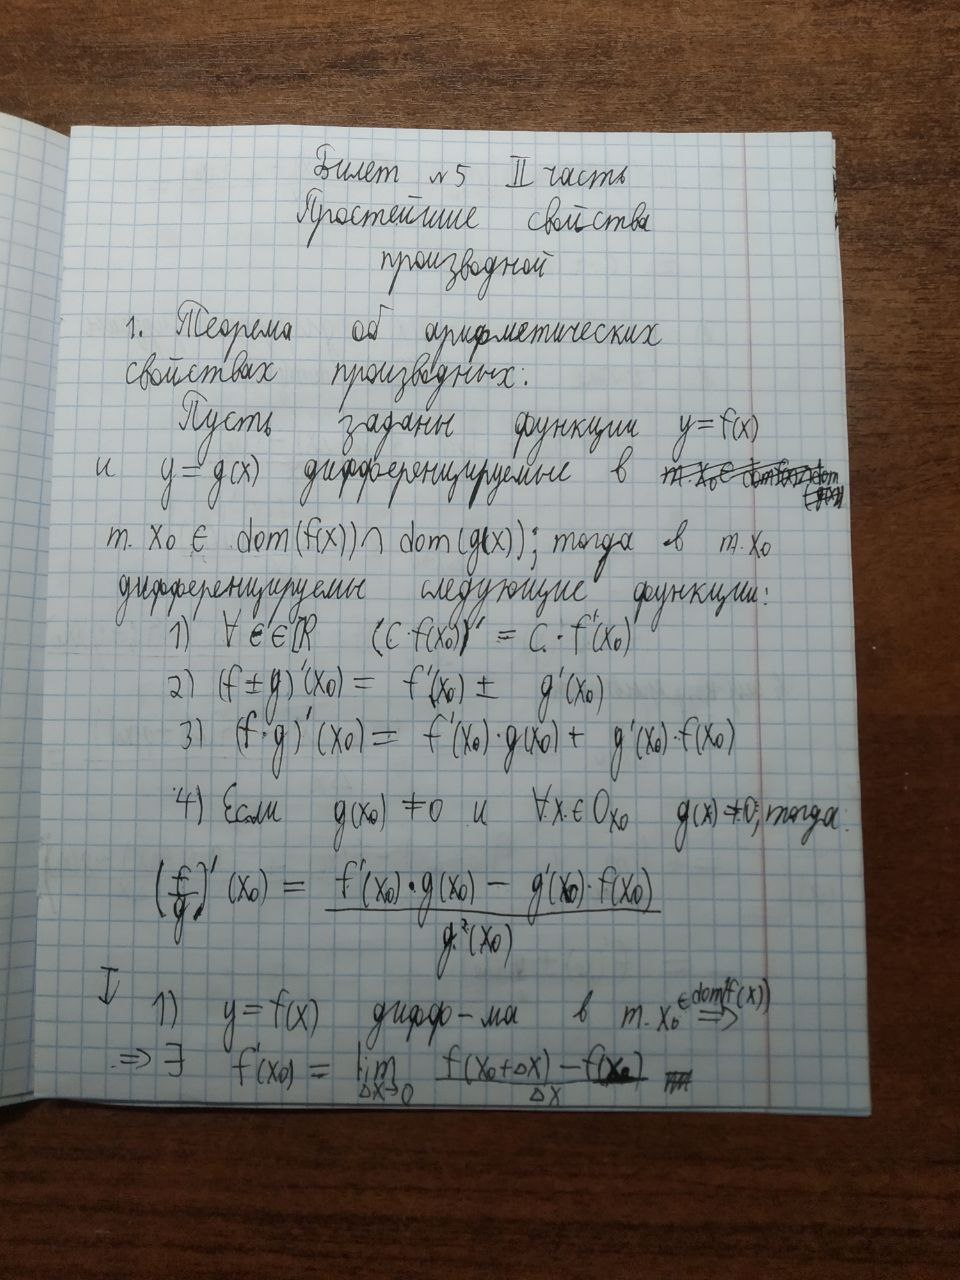 Билет №5 II часть
Простейшие свойства
производной
1. Теорема об арифметических
свойствах производных:
Пусть заданы функции y = f(x)
и y = g(x) дифференцируемые в
т. x₀ ∈ dom(f(x)) ∩ dom(g(x)); тогда в т. x₀
дифференцируемы следующие функции:
1) ∀ c ∈ ℝ (C·f(x₀))' = C·f'(x₀)
2) (f ± g)'(x₀) = f'(x₀) ± g'(x₀)
3) (f·g)'(x₀) = f'(x₀)·g(x₀) + g'(x₀)·f(x₀)
4) Если g(x₀) ≠ 0 и ∀x ∈ O_x₀ g(x) ≠ 0; тогда:
(f/g)'(x₀) = (f'(x₀)·g(x₀) − g'(x₀)·f(x₀)) / g²(x₀)
I 1) y = f(x) дифф-ма в т. x₀ ∈ dom(f(x)) ⇒
⇒ ∃ f'(x₀) = lim Δx→0 (f(x₀+Δx) − f(x₀)) / Δx